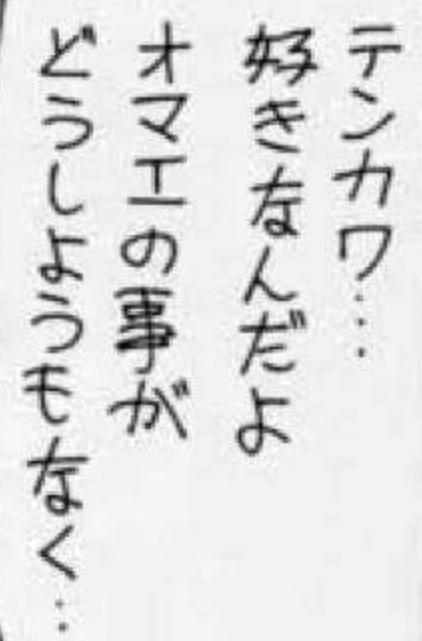 テンカワ…
好きなんだよ
オマエの事が
どうしようもなく…